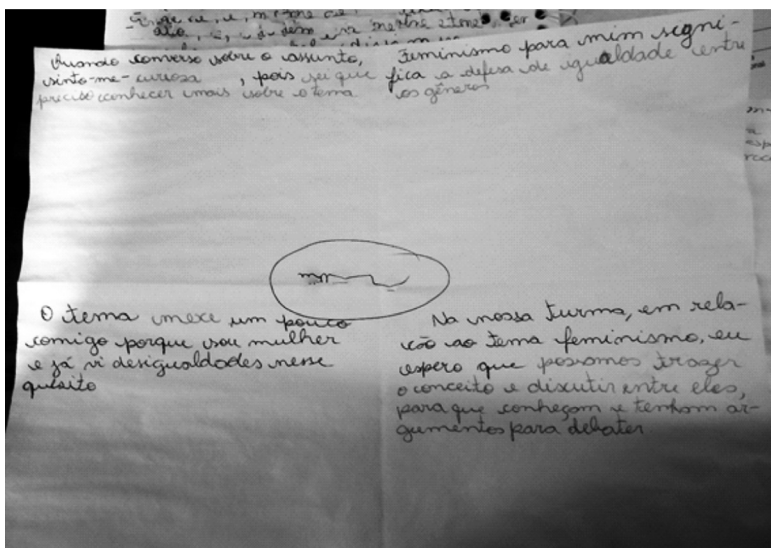 Quando converso sobre o assunto,
sinto-me curiosa, pois sei que
preciso conhecer mais sobre o tema
Feminismo para mim signi-
fica a defesa de igualdade entre
os gêneros
O tema mexe um pouco
comigo porque sou mulher
e já vi desigualdades nesse
quesito
Na nossa turma, em rela-
ção ao tema feminismo, eu
espero que possamos trazer
o conceito e discutir entre eles,
para que conheçam e tenham ar-
gumentos para debater